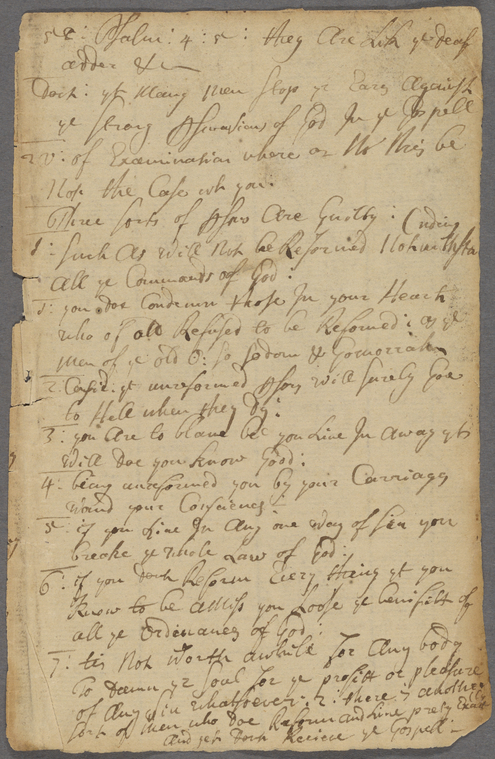 58: Psalm: 4: 5: they Are Lik ye deaf
adder &c
Doct: yt Many Men stop yr Ears Against
ye strong Perswasions of God In ye Gospell
2 v: of Examination where or No this be
Not the Case with you:
Three sorts of Persons Are Guilty:
1: such As will Not be Reformed Notwithstanding
All ye Commands of God:
1: you Doe Condemn those In your Heart
who of old Refused to be Reformed: as ye
Men of ye old : so sodom & Gomorrah
2: Consid: yt unreformed Persons will surely Goe
to Hell when they Dy:
3: you Are to blame bec you Live In A way yt
will Doe you Know Good:
4: being unreformed you by your Carriages
wound your Consciences
5: if you Live In Any one Way of sin you
breake ye whole Law of God:
6: if you Dont Reform Every thing yt you
Know to be Amiss you Loose ye benifitt of
all ye ordinances of God:
7: tis Not worth awhile for Any body
To Damn yr soul for ye profitt or pleasure
of Any sin whatsoever: 2: there is another
sort of Men who Doe Reform and Live prety Exact
And yet Dont Recieve ye Gospell: